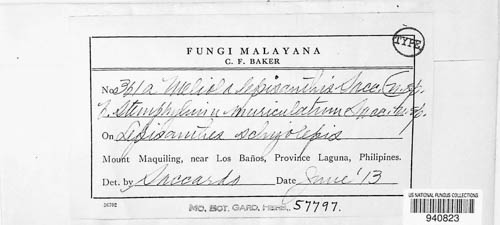 TYPE
FUNGI MALAYANA
C. F. BAKER
No. 361a Meliola lepisanthis Sacc. (n. sp.
& Stemphylium muriculatum Sacc. n. sp.
On Lepisanthes schizolepis
Mount Maquiling, near Los Baños, Province Laguna, Philipines.
Det. by Saccardo Date June '13
26702
MO. BOT. GARD. HERB. 57797.
US NATIONAL FUNGUS COLLECTIONS
940823